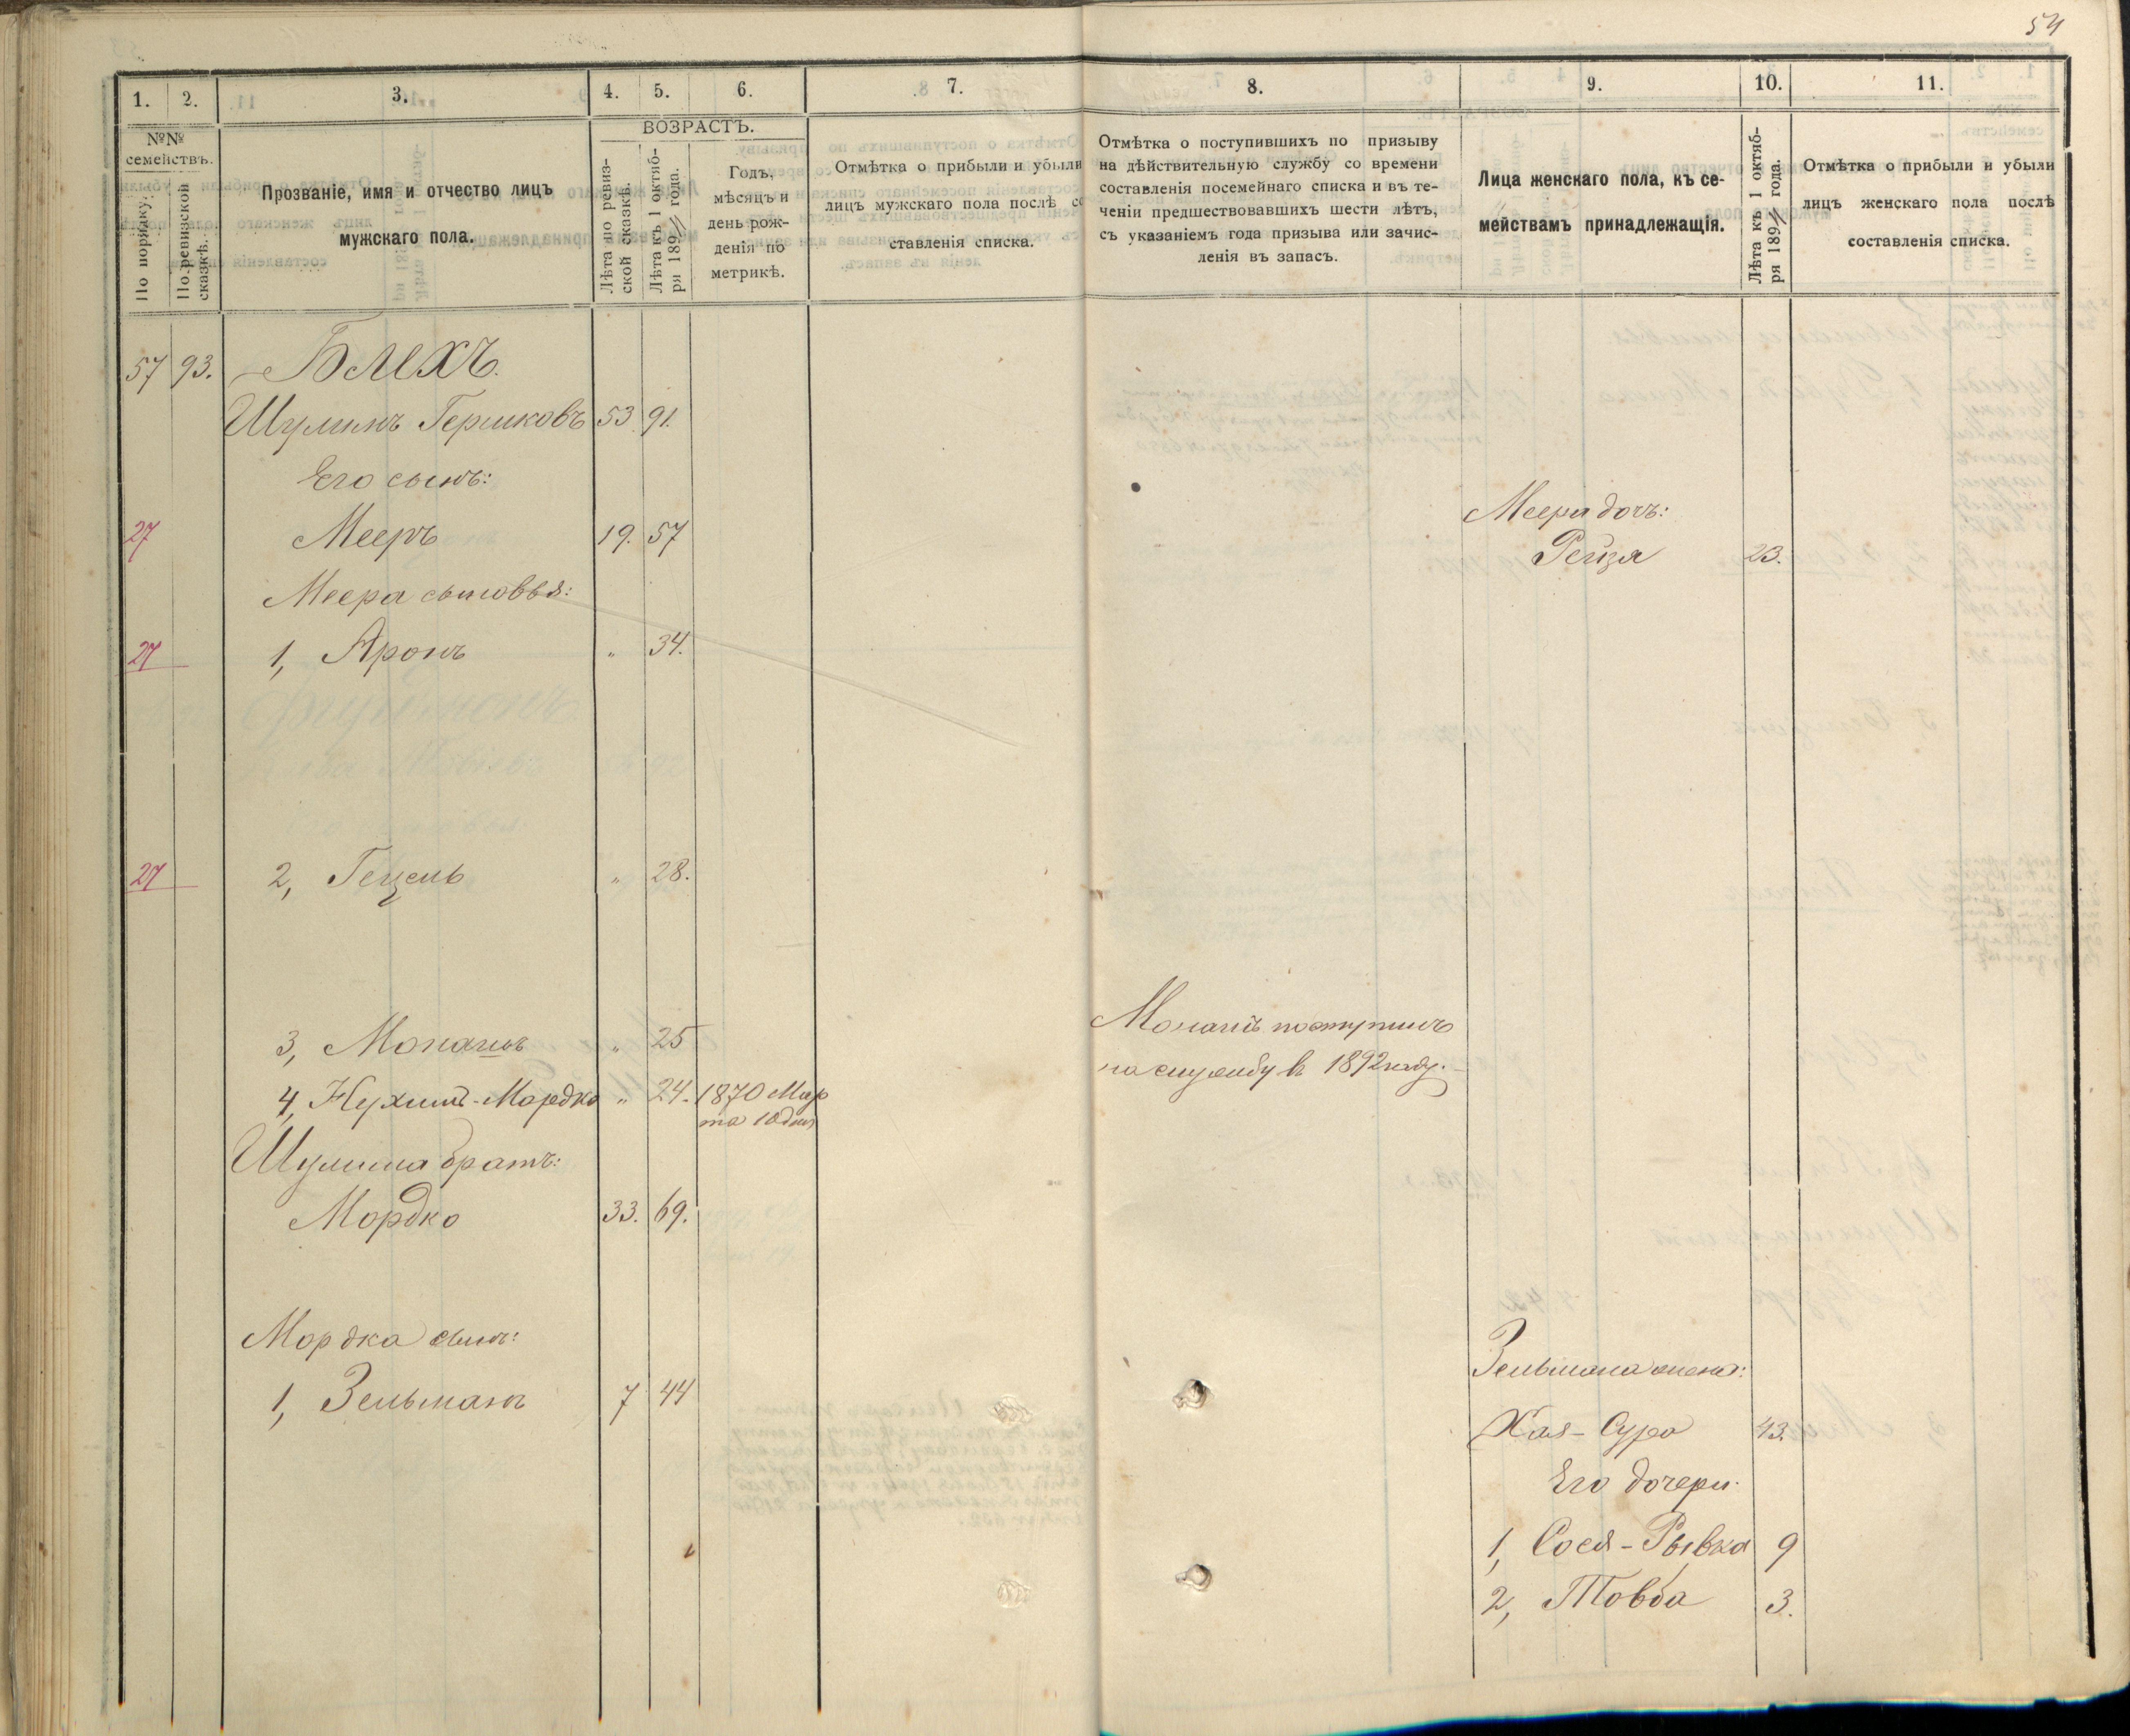 54
1. 2. 3. 4. 5. 6. 7. 8. 9. 10. 11.
№№
семействъ.
По порядку.
По ревизской
сказкѣ.
Прозваніе, имя и отчество лицъ
мужскаго пола.
ВОЗРАСТЪ.
Лѣта по ревиз-
ской сказкѣ.
Лѣта къ 1 октяб-
ря 189 года.
Годъ,
мѣсяцъ и
день рож-
денія по
метрикѣ.
Отмѣтка о прибыли и убыли
лицъ мужскаго пола послѣ со
ставленія списка.
Отмѣтка о поступившихъ по призыву
на дѣйствительную службу со времени
составленія посемейнаго списка и въ те-
ченіи предшествовавшихъ шести лѣтъ,
съ указаніемъ года призыва или зачис-
ленія въ запасъ.
Лица женскаго пола, къ се-
мействамъ принадлежащія.
Лѣта къ 1 октяб-
ря 189 года.
Отмѣтка о прибыли и убыли
лицъ женскаго пола послѣ
составленія списка.
57 93. Блехъ.
Шулимъ Гершковъ 53 91.
Его сынъ:
27 Мееръ 19. 57
Меера сыновья:
27 1, Аронъ „ 34.
27 2, Гецель „ 28.
3, Монашъ „ 25
4, Нухимъ-Мордко „ 24. 1870 Мар
та 10 дня
Шулима братъ:
Мордко 33. 69.
Мордка сынъ:
1, Зельманъ 7 44
Монашъ поступилъ
на службу въ 1892 году.
Меера дочь:
Рейзя 23.
Зельмана жена:
Хая-Сура 43.
Его дочери:
1, Сося-Рывка 9
2, Товба 3.